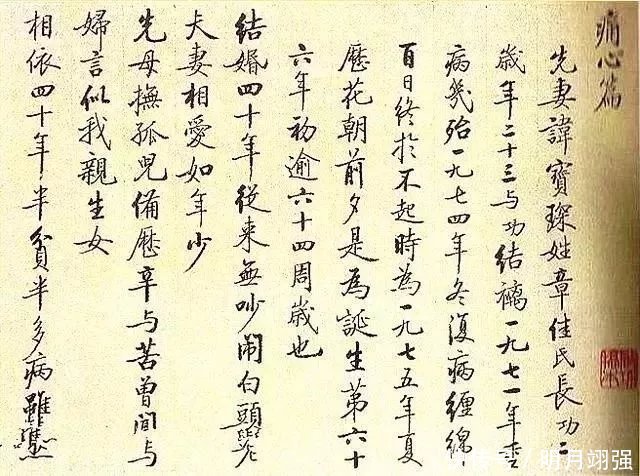 痛心篇
先妻諱寶琛姓章佳氏長功二
歲年二十三与功結褵一九七一年
病幾殆一九七四年冬復病纏綿
百日終於不起時為一九七五年夏
歷花朝前夕是為誕生第六十
六年初逾六十四周歲也
結婚四十年從来無吵鬧白頭
夫妻相愛如年少
先母撫孤兒備歷辛与苦曾聞与
婦言似我親生女
相依四十年半貧半多病雖
明月翊强